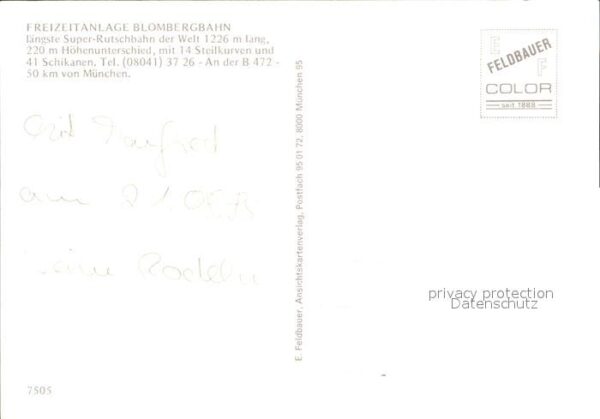 FREIZEITANLAGE BLOMBERGBAHN
längste Super-Rutschbahn der Welt 1226 m lang,
220 m Höhenunterschied, mit 14 Steilkurven und
41 Schikanen. Tel. (08041) 37 26 - An der B 472 -
50 km von München.
Mit Manfred
am
beim Rodeln
7505
E. Feldbauer, Ansichtskartenverlag, Postfach 95 01 72, 8000 München 95
FELDBAUER
COLOR
seit 1888
privacy protection
Datenschutz